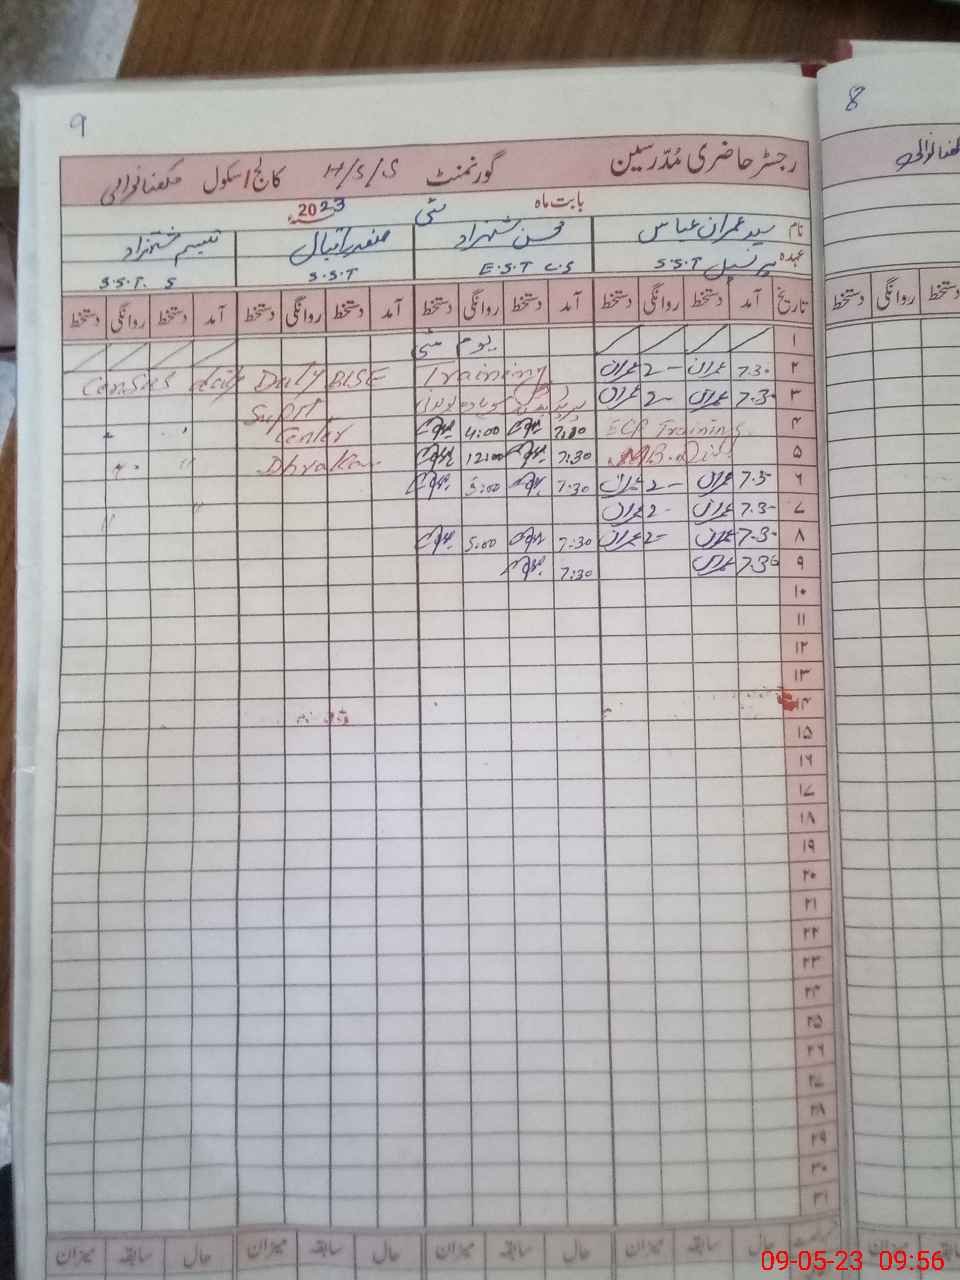 9
8
رجسٹر حاضری مُدّرسین گورنمنٹ H/S/S کالج/اسکول مکھنانوالی
بابت ماہ مئی 2023
نام سید عمران عباس محسن شہزاد صفدر اقبال
عہدہ پرنسپل S.S.T E.S.T C.S S.S.T S.S.T. S
تاریخ آمد دستخط روانگی دستخط آمد دستخط روانگی دستخط آمد دستخط روانگی دستخط آمد دستخط روانگی دستخط
دستخط روانگی دستخط
۱ یوم مئی
۲ 7.30 عمران 2 عمران Training Daily BISE Census duty
۳ 7.30 عمران 2 عمران Supdt
۴ ECP Training 4:00 Center " "
۵ 7:30 12:00 Dhrakan " "
۶ 7.30 عمران 2 عمران 7:30 5:00
۷ 7.30 عمران 2 عمران " "
۸ 7.30 عمران 2 عمران 7:30 5:00
۹ 7.30 عمران 7:30
۱۰
۱۱
۱۲
۱۳
۱۴
۱۵
۱۶
۱۷
۱۸
۱۹
۲۰
۲۱
۲۲
۲۳
۲۴
۲۵
۲۶
۲۷
۲۸
۲۹
۳۰
۳۱
حال سابقہ میزان حال سابقہ میزان حال سابقہ میزان حال سابقہ میزان
09-05-23 09:56